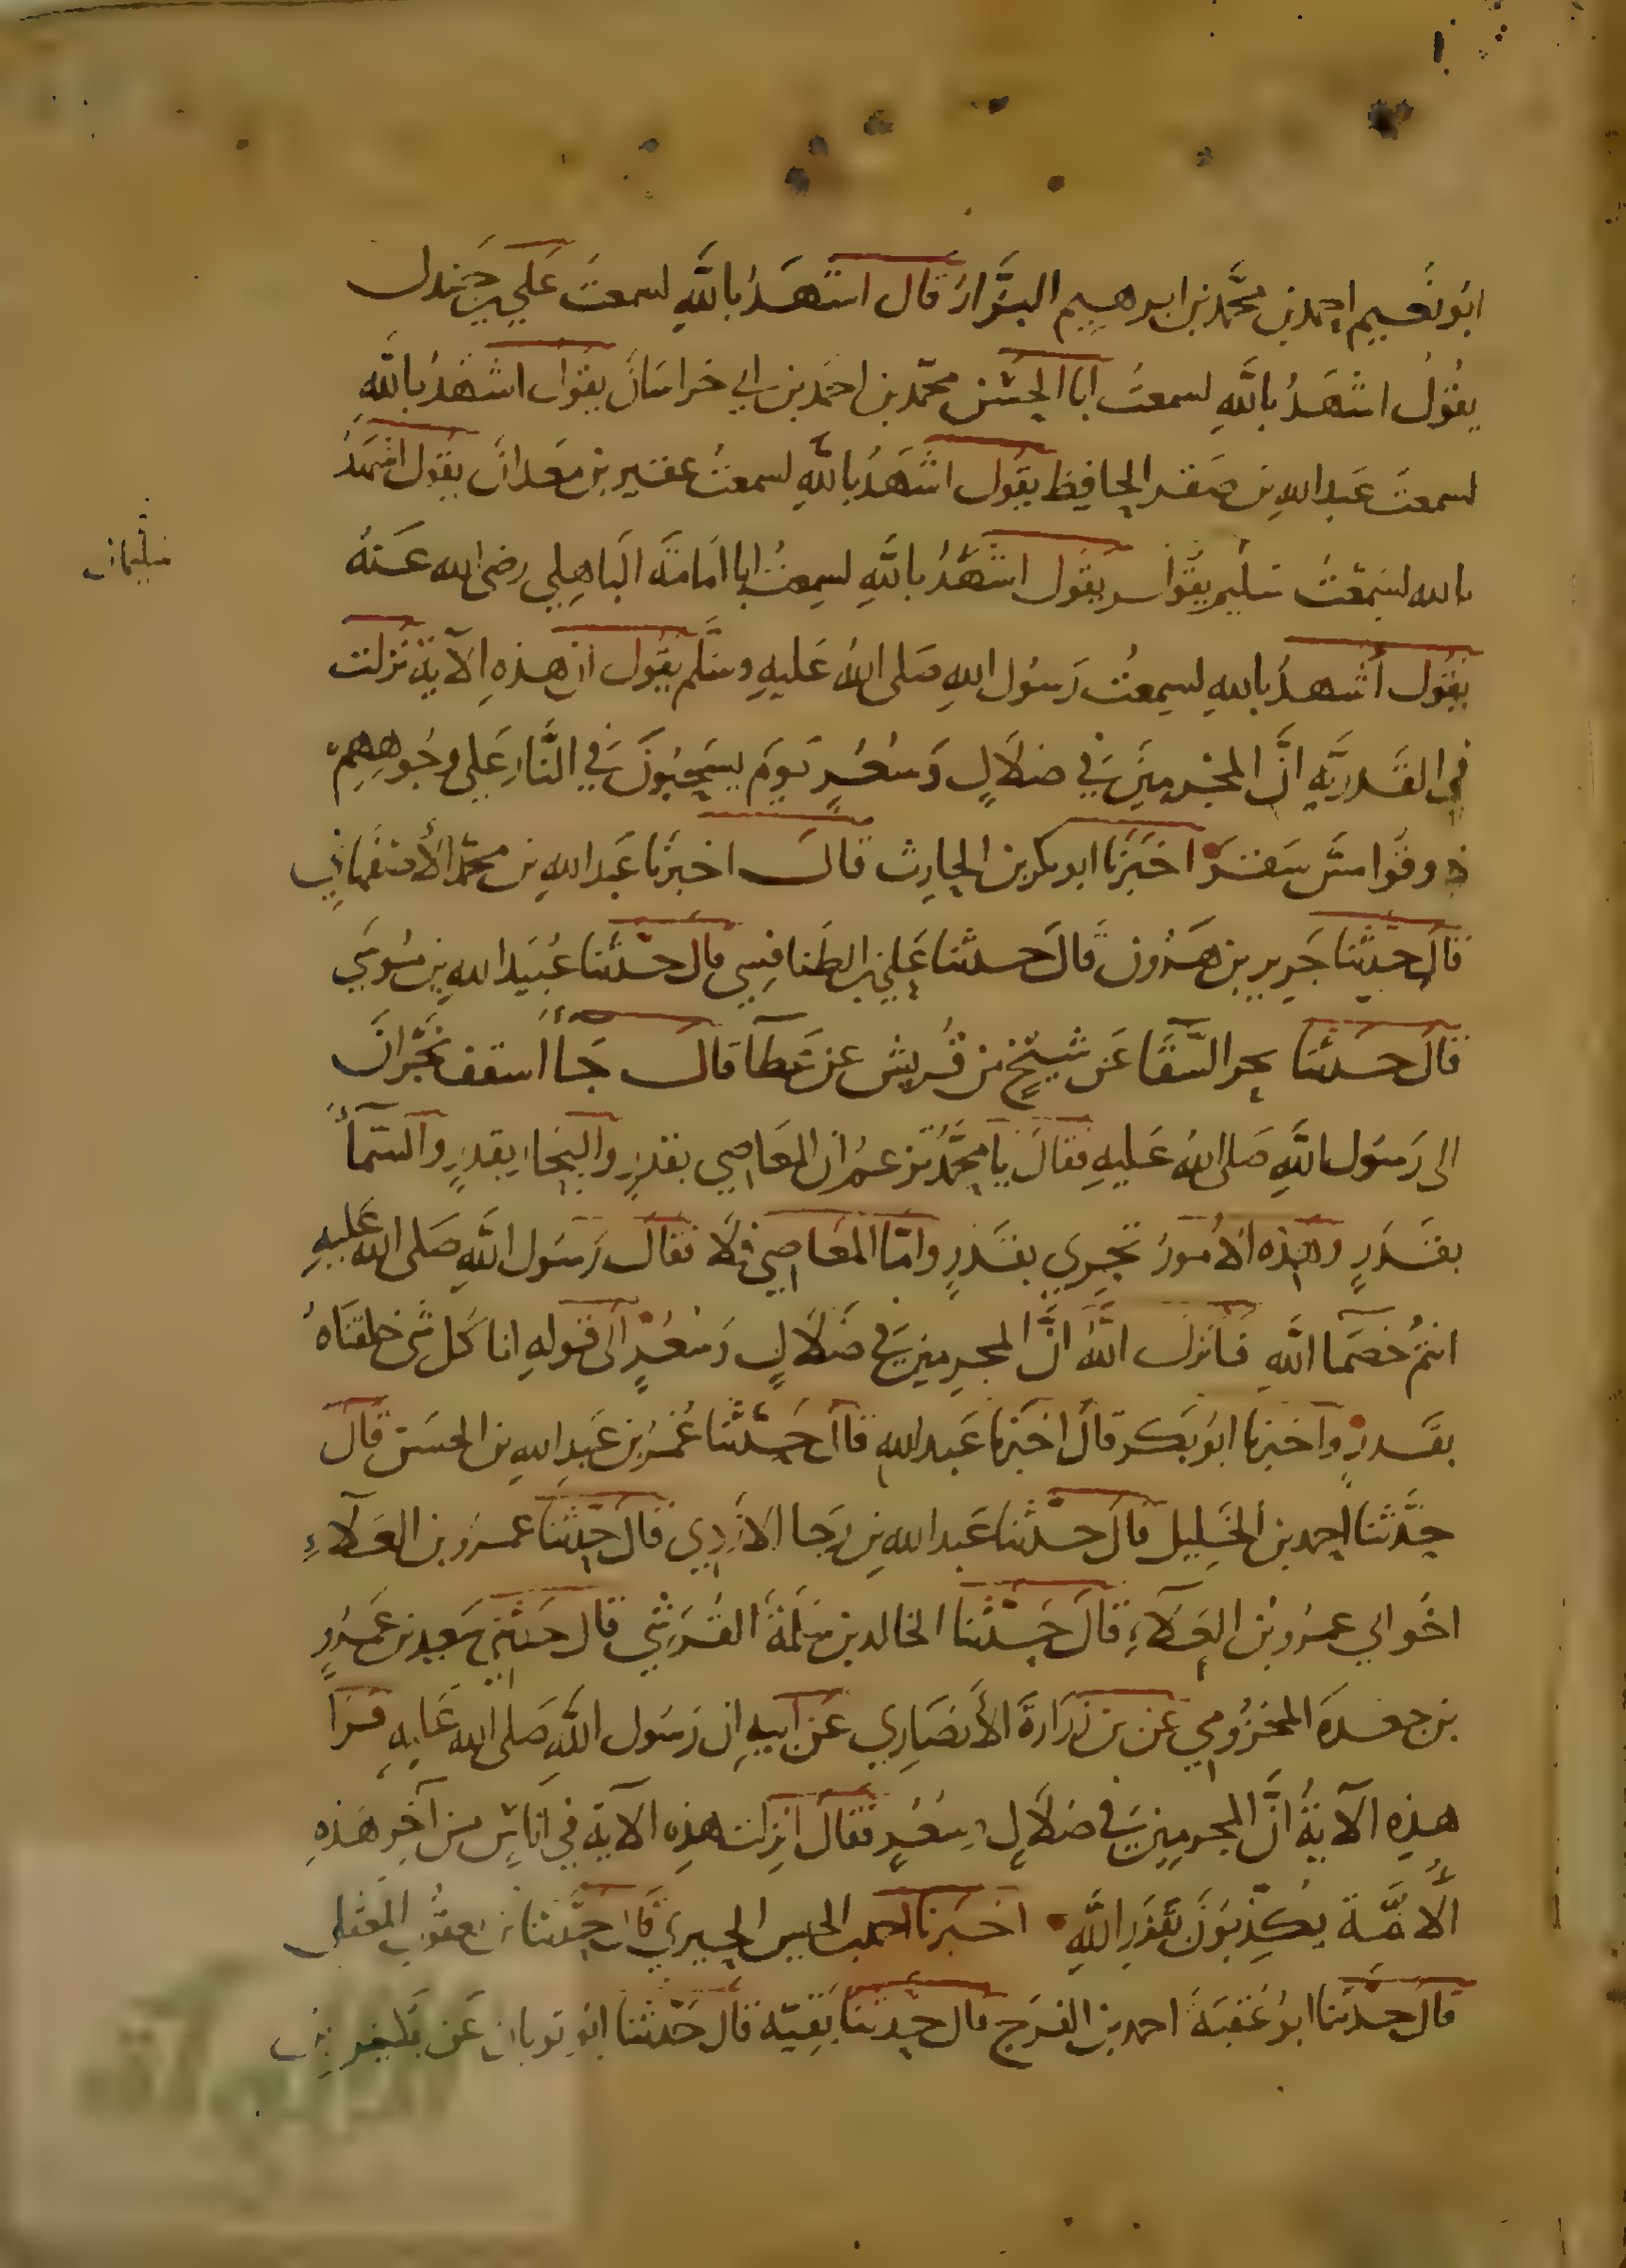 ابُو نُعيم احمد بن محمَّد بن ابرهيم البزَّازُ قال اشهَدُ بالله لسمعتُ عَلي بن جَندل
يقُولُ اشهَدُ بالله لسمعتُ ابا الحسَن محمّد بن احمَد بن ابي خراسَان يقول اشهَدُ بالله
لسمعتُ عَبد الله بن صَقر الحافِظ يقول اشَهَدُ بالله لسمعتُ عفير بن معَدان يقول اشهَدُ
بالله لسَمعْتُ سُليم يقول اشهَدُ بالله لسِمعتُ ابا امَامَة البَاهِلي رضى الله عَنهُ
سليمان
يقُول أشهدُ بالله لسمِعتُ رَسُول الله صَلى اللهُ عَليهِ وسَلَّم يقُول ان هذهِ الآية نَزلت
في القَدريّه انَّ المجرمينَ في ضلاَلٍ وَسُعُرٍ يَومَ يسحَبُونَ في النَّارِ عَلى وجُوههِمْ
ذوقُوا مسَّ سَقرَ اخبَرنا ابو بكر بن الحارِث قال اخبرنا عَبد الله بن محمّد الأصفهاني
قالَ حدّثنا جَرير بن هَرُون قالَ حدثنا عَلي بن الطَنافِسي قال حدّثنا عُبَيد الله بن مُوسَي
قالَ حدثنا بحر السَّقّا عَن شيخٍ من قُريش عن عَطآ قال جَأ اُسقف نجَرانَ
الى رَسُول اللَّهِ صَلى اللهُ عَليهِ فقالَ يا محَمَّدُ تزعمُ ان المعَاصِي بقدَرٍ والبحَار بِقدَرٍ والسّمآأُ
بقَدَرٍ وهذه الأمورُ تجرِي بقَدَرٍ وامّا المعَاصِي فلاَ فقالَ رَسُول اللَّهِ صَلى الله عَليهِ
انتمُ خصَما اللَّهِ فَانزلَ اللَّهُ انَّ المجرِمينَ في ضَلاَلٍ وَسُعُرٍ الَى قولهِ انا كُل شَي خلقنَاهُ
بقَدرٍ وآخبرنا ابُو بَكر قالَ اخبَرنا عَبد الله قال حَدّثنا عُمَرُ بن عَبدِ الله بن الحسَن قالَ
حَدَّثنا احمد بن الخَليل قالَ حدّثنا عَبد الله بن رَجا الازدِي قالَ حدّثنا عمرو بن العَلآءِ
اخُو ابي عمرو بْن العَلآءِ قالَ حَدّثنا الخالد بن سَلمَةَ القُرَشي قال حدثني سَعيد بن عَمرٍو
بن جعدَة المخزُومِي عن بن زُرَارةَ الأنصَارِي عَن ابيهِ ان رَسُول اللَّهِ صَلى الله عَليهِ قَرَأ
هذِهِ الآيةُ انَّ المجرمِينَ في ضلاَلٍ وسُعُرٍ فقالَ انِزلت هذِهِ الآية في انَاسٍ من آخِرِ هَذهِ
الأُمَّة يُكذِّبُونَ بقَدَرِ اللَّهِ اخبَرنا احمد بن الحسن الحِيري قال حَدَّثنا بن يعقُوبِ المَعقلي
قالَ حدَّثنا ابُو عُتبَةَ احمد بن الفرَج قال حدثنا بَقيّة قالَ حَدّثنا ابُو ثوبان عَن